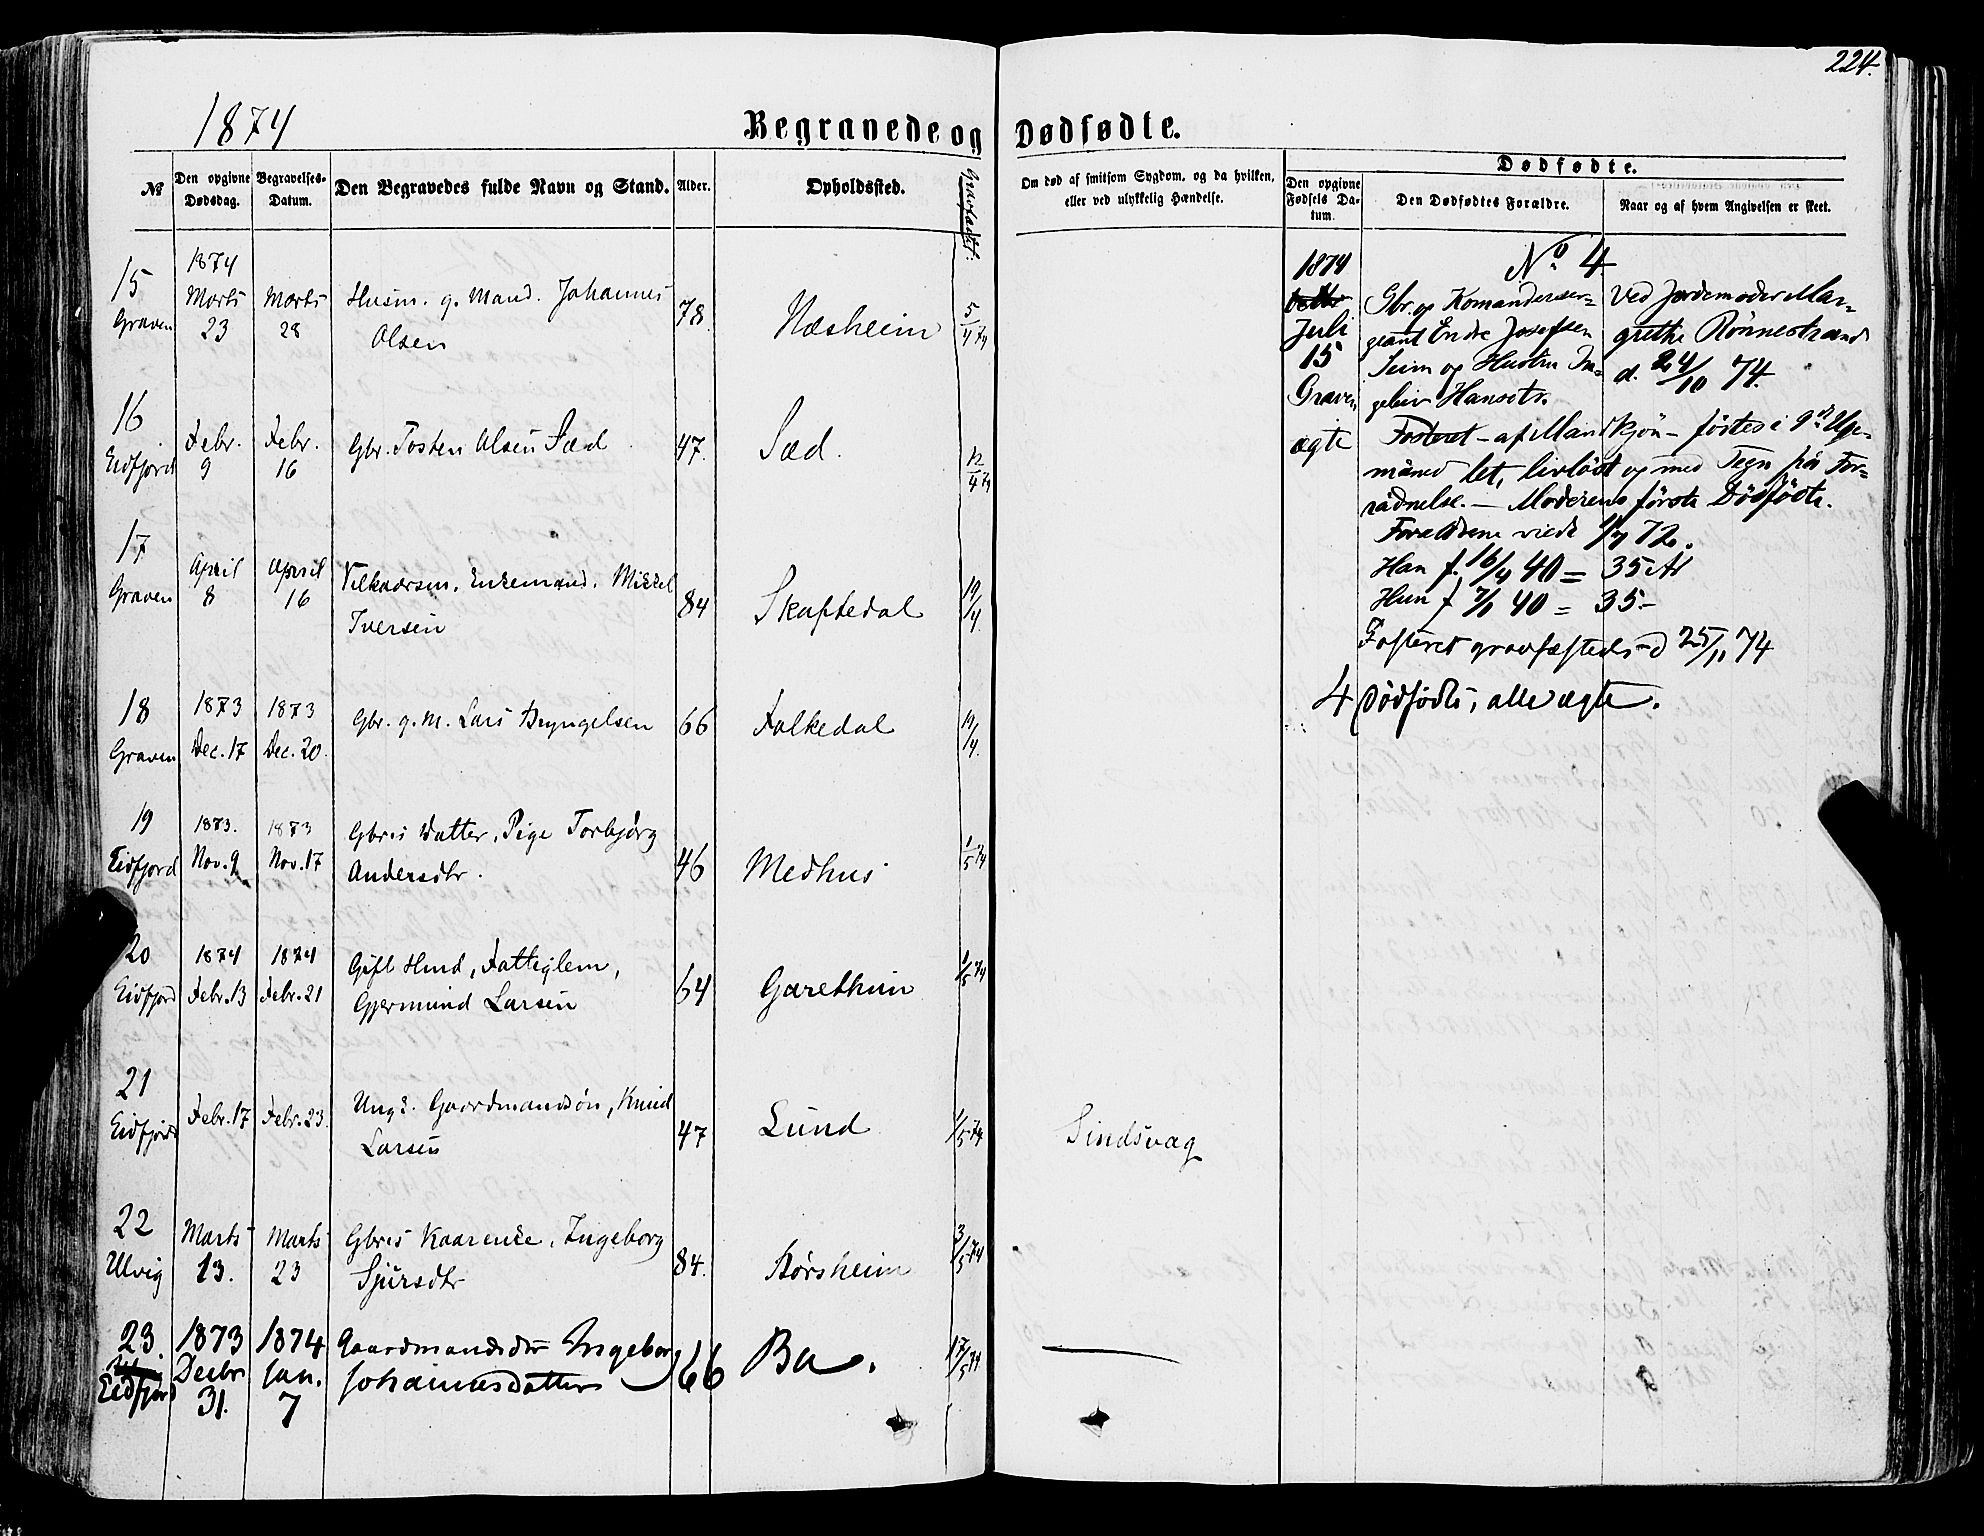 224.
1874
Begravede og Dødfødte.
No
Den opgivne Dødsdag.
Begravelses-Datum.
Den Begravedes fulde Navn og Stand.
Alder.
Opholdssted.
Gravfæstet:
Om død af smitsom Sygdom, og da hvilken,
eller ved ulykkelig Hændelse.
Dødfødte.
Den opgivne Fødsels Da-tum.
Den Dødfødtes Forældre.
Naar og af hvem Angivelsen er skeet.
15 Graven
1874 Marts 23
Marts 28
Husm. g. Mand. Johannes
Olsen
78.
Næsheim
5/4 74
16 Eidfjord
Febr. 9
Febr. 16
Gbr. Tosten Olsen Sæd
47.
Sæd.
12/4 74
17 Graven
April 8
April 16
Vilkaarsm. Enkemand. Mikkel
Iversen
84
Skaftedal
19/4.
18 Graven
1873 Dec. 17
1873 Dec. 20.
Gbr. g. M. Lars Bryngelsen
66
Falkedal
19/4.
19 Eidfjord
1873. Nov. 9
1873 Nov. 17
Gbrs Datter, Pige Torbjørg
Andersdtr.
46
Medhus
1/5 74
20 Eidfjord
1874 Febr. 13
1874 Febr. 21
Gift Huusmand, Fattiglem,
Gjermund Larsen
64
Garethun
1/5 74
21 Eidfjord
Febr. 17
Febr. 23.
Ungk. Gaardmandsøn, Knud
Larsen
47
Lund
1/5 74
Sindsvag
22 Ulvig
Marts 13.
Marts 23
Gbrs Kaarenke, Ingeborg
Sjursdtr
84.
Børsheim
3/5 74
23. Eidfjord
1873 Decbr 31.
1874 Jan. 7
Gaardmandsdtr Ingeborg
Johannesdatter
66
Bu.
17/5 74
No 4
1874
Juli
15
Graven
ægte
Gbr. og Komandersер-
geant Endre Josefsen
Seim og Hustru In-
gebor Hansdtr.
Ved Jordemoder Mar-
grethe Rönnestrand
d. 24/10 74.
Fosteret - af Mandkjön - födtes i 9de Uge-
måned let, livlöst og med Tegn på For-
rådnelse. - Moderens förste Dödfödte.
Forældrene viede 1/7 72.
Han f. 16/4 40 = 35 År
Hun f 7/1 40 = 35 -
Fosteret gravfæstedes d 25/11 74
4 Dödfödte, alle ægte.